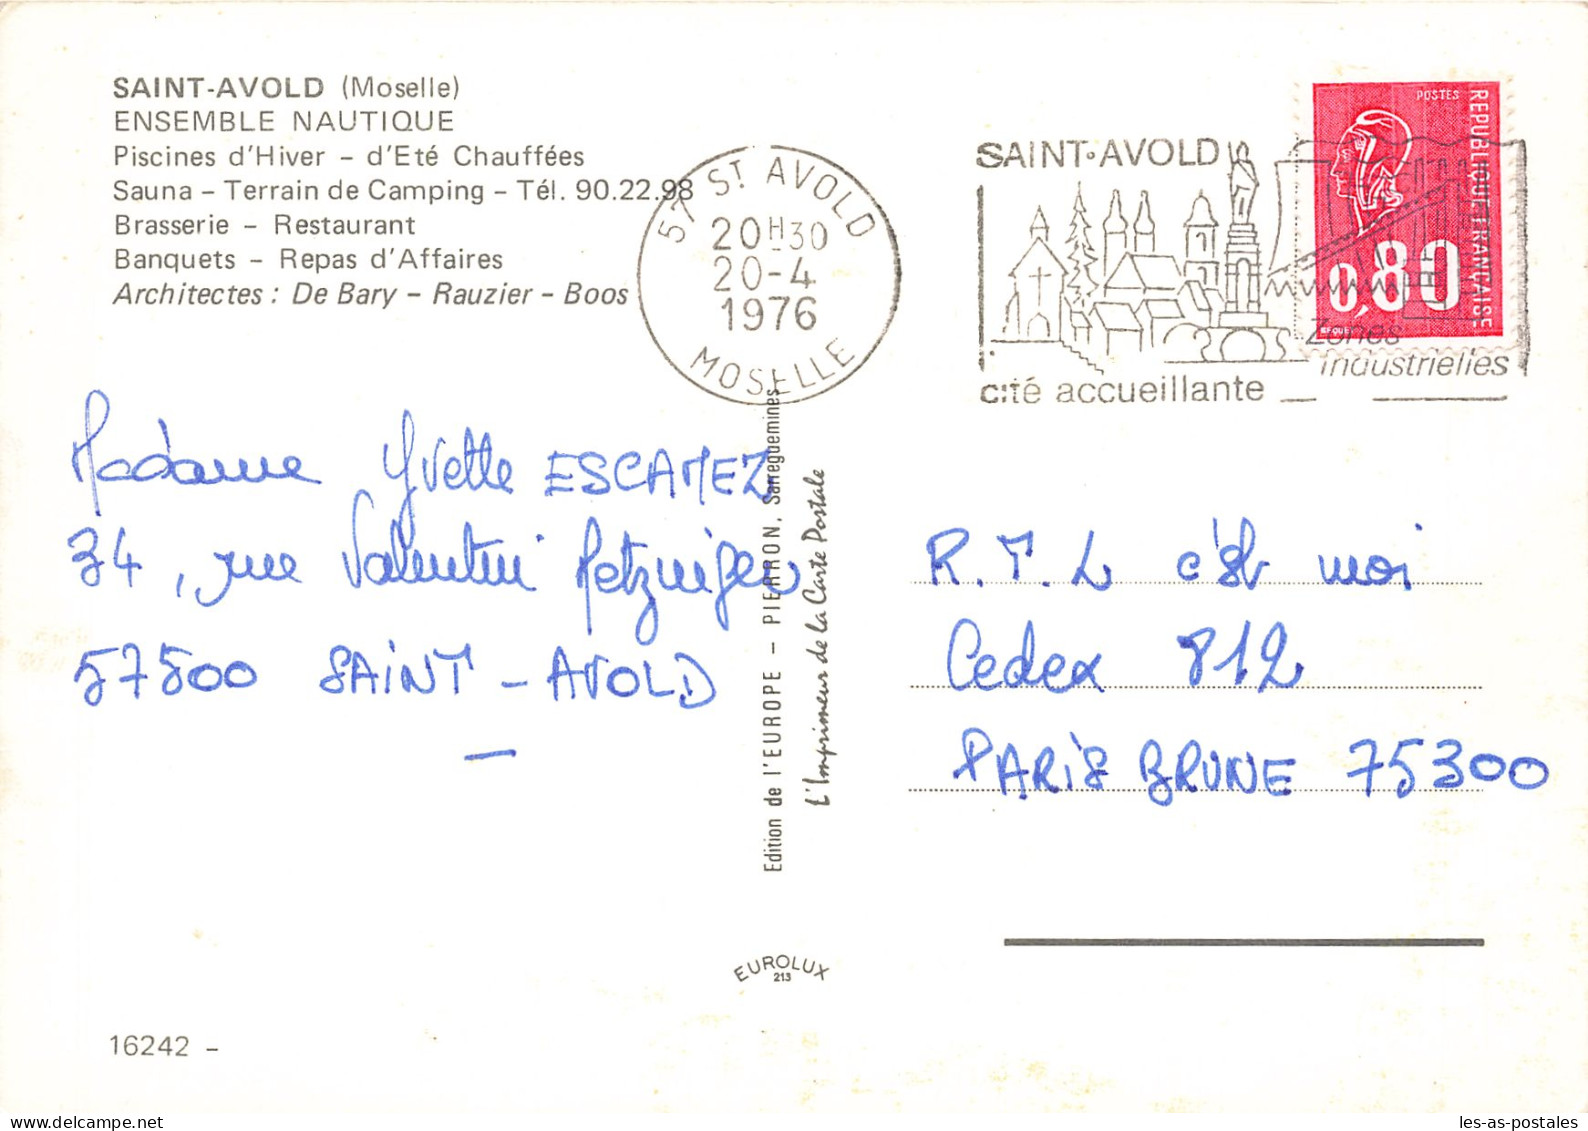 SAINT-AVOLD (Moselle)
ENSEMBLE NAUTIQUE
Piscines d'Hiver – d'Eté Chauffées
Sauna – Terrain de Camping – Tél. 90.22.98
Brasserie – Restaurant
Banquets – Repas d'Affaires
Architectes : De Bary – Rauzier – Boos
57 ST AVOLD
20H30
20-4
1976
MOSELLE
SAINT-AVOLD
cité accueillante
Zones
industrielles
POSTES
REPUBLIQUE FRANÇAISE
0,80
Madame Yvette ESCAMEZ
34, rue Valentin Metzniger
57500 SAINT-AVOLD
Edition de l'EUROPE – PIERRON, Sarreguemines
L'Imprimeur de la Carte Postale
R.T.L c'est moi
Cedex 812
PARIS BRUNE 75300
EUROLUX
213
16242 –
les-as-postales